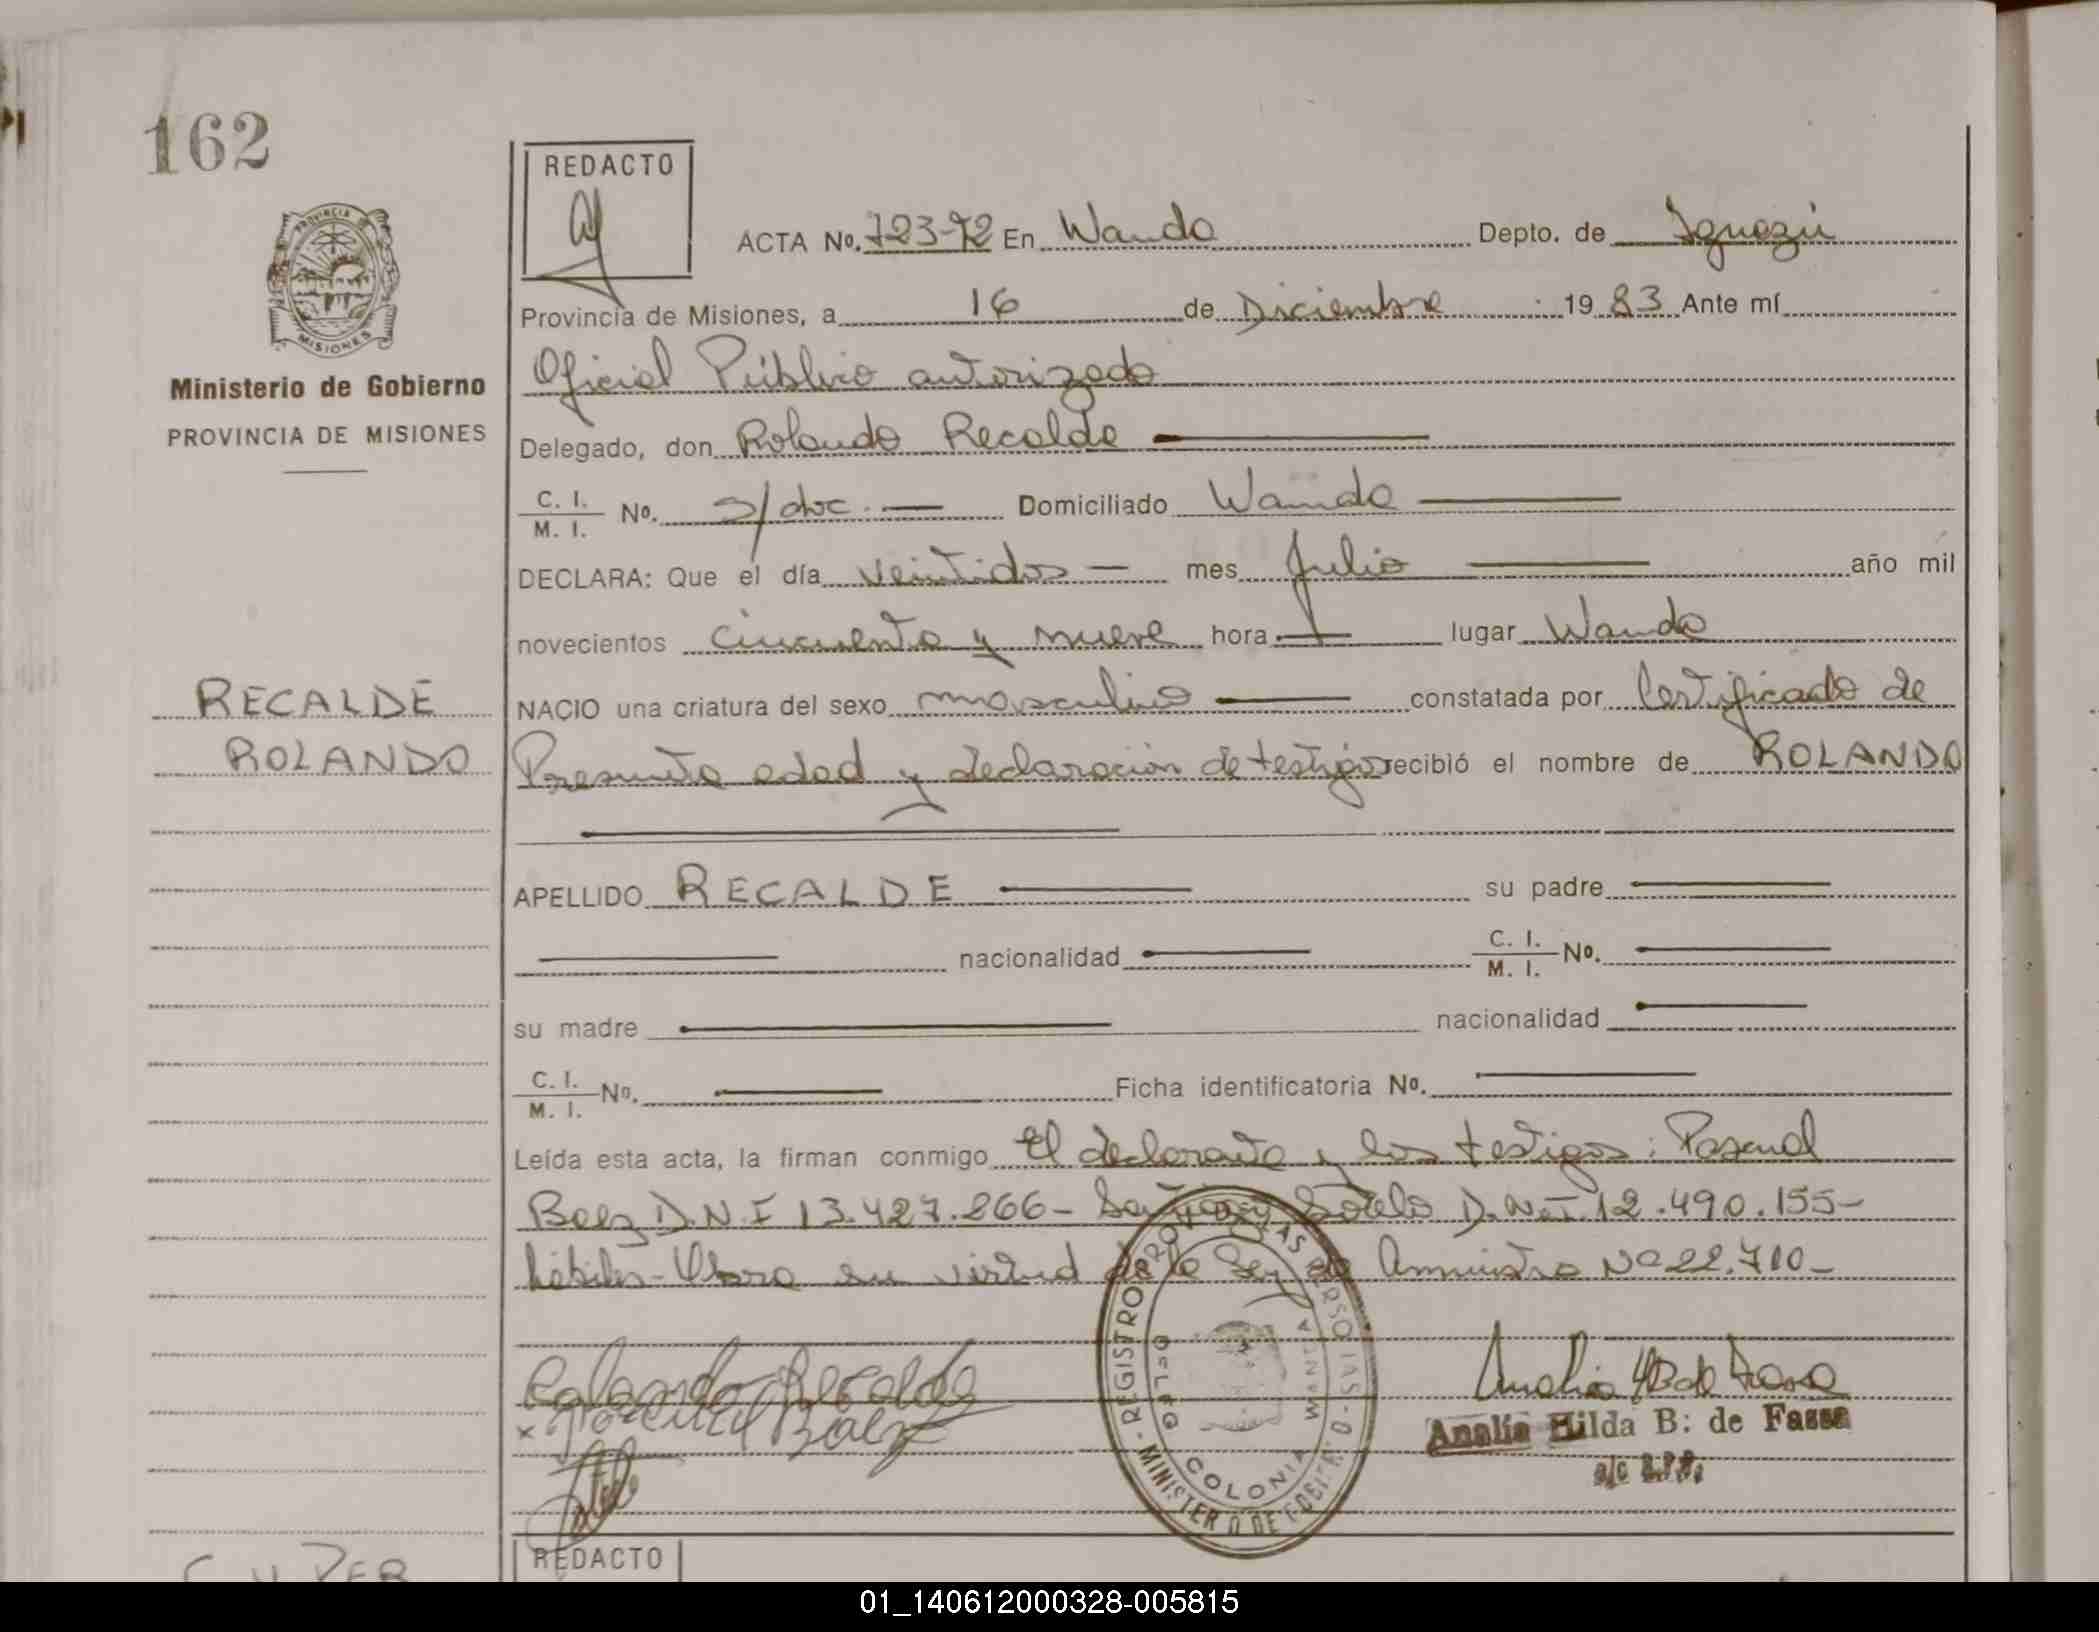 162
REDACTO
PROVINCIA DE
MISIONES
ACTA No. 723-72 En Wanda Depto. de Iguazú
Provincia de Misiones, a 16 de Diciembre 1983 Ante mí
Ministerio de Gobierno
PROVINCIA DE MISIONES
Oficial Público autorizado
Delegado, don Rolando Recalde
C. I. / M. I. No. s/doc. Domiciliado Wanda
DECLARA: Que el día veintidos mes Julio año mil
novecientos cincuenta y nueve hora lugar Wanda
RECALDE
ROLANDO
NACIO una criatura del sexo masculino constatada por Certificado de
Presunta edad y declaración de testigos recibió el nombre de ROLANDO
APELLIDO RECALDE su padre
nacionalidad C. I. / M. I. No.
su madre nacionalidad
C. I. / M. I. No. Ficha identificatoria No.
Leída esta acta, la firman conmigo El declarante y los testigos: Pascual
Baez D.N.I 13.427.866- Sotelo D.N.I. 12.490.155-
hábiles- en virtud de la Ley de Amnistia Nº 22.710-
Rolando Recalde
x Pascual Baez
REGISTRO PROV. DE LAS PERSONAS
DELEG.
WANDA
COLONIA
MINISTERIO DE GOBIERNO
Analia H B de Fassa
Analía Hilda B: de Fassa
REDACTO
01_140612000328-005815